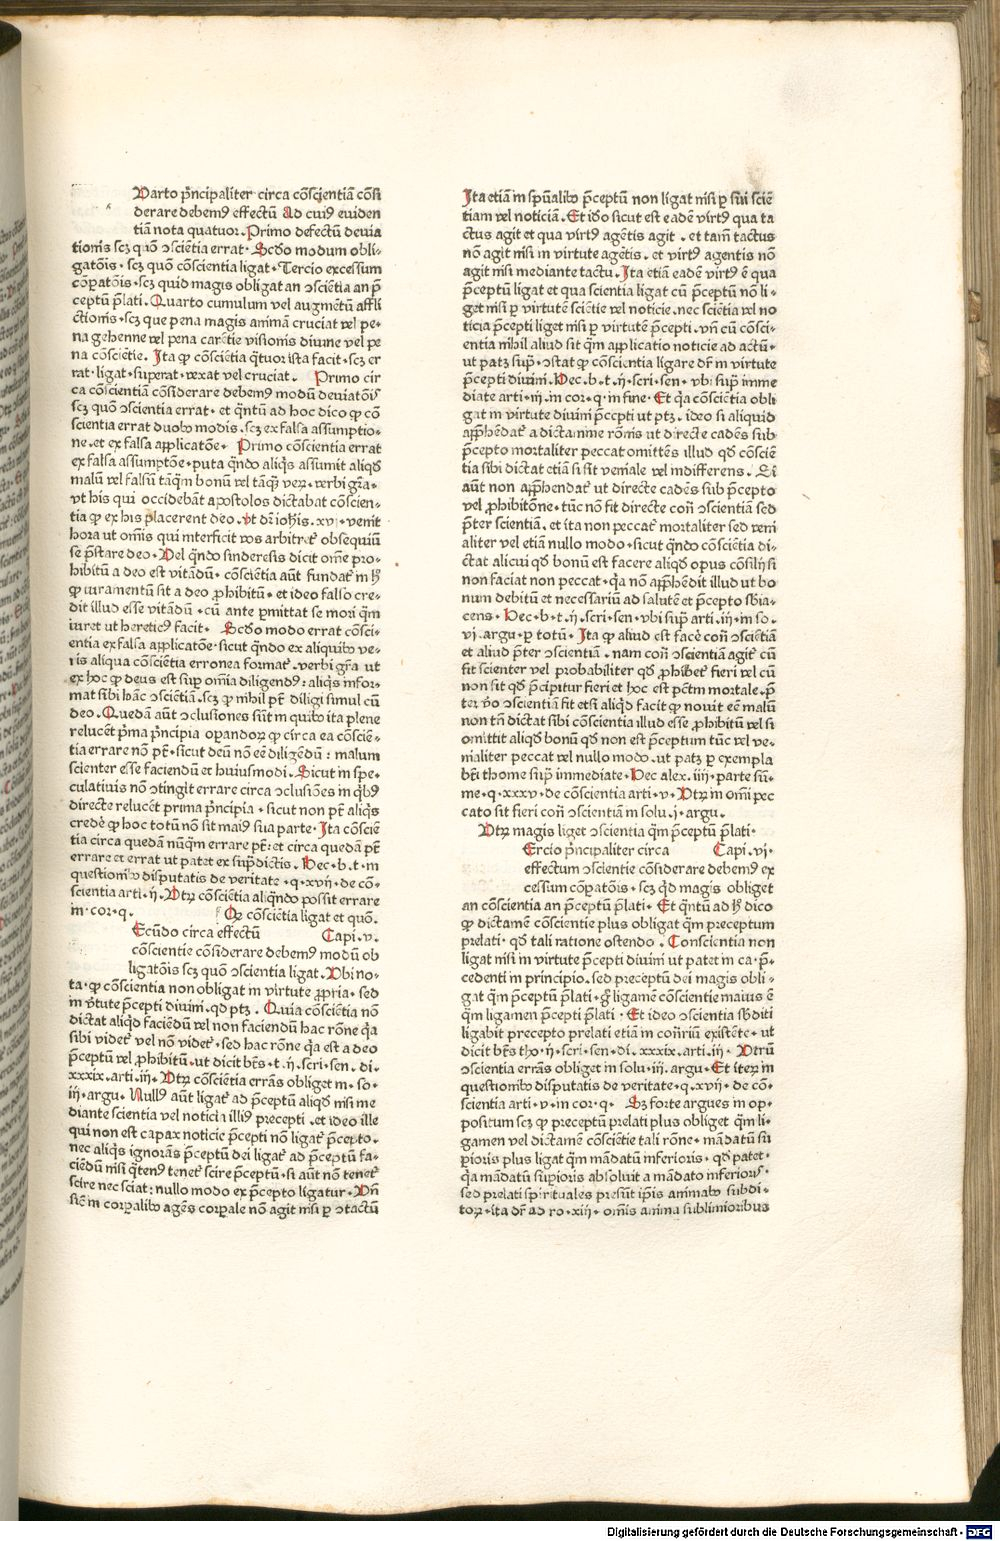 Uarto p̄ncipaliter circa cōscientiā cōsi
derare debemꝰ effectū Ad cuiꝰ euiden
tiā nota quatuor. Primo defectū deuia
tionis scꝫ quō ɔscientia errat. Scd̄o modum obli-
gatōis. scꝫ quō cōscientia ligat. Tercio excessum
cōꝑatōis. scꝫ quid magis obligat an ɔscientia an p̄
ceptū p̄lati. Quarto cumulum vel augmētū affli
ctionis. scꝫ que pena magis animā cruciat vel pe-
na gehenne vel pena carētie visionis diuine vel pe
na cōsciētie. Ita ꝙ cōsciētia q̄tuor ista facit. scꝫ er
rat. ligat. superat. vexat vel cruciat. Primo cir
ca cōscientiā cōsiderare debemꝰ modū deuiatōis
scꝫ quō ɔscientia errat. et q̄ntū ad hoc dico ꝙ cō
scientia errat duobꝰ modis. scꝫ ex falsa assumptio-
ne. et ex falsa applicatōe. Primo cōscientia errat
ex falsa assumptōe. puta q̄ndo aliqͥs assumit aliqd̄
malū vel falsū tāq̄m bonū vel tāqͣꝫ veꝝ. verbi gr̄a.
vt his qui occidebāt apostolos dictabat cōscien-
tia ꝙ ex his placerent deo. vt dr̄ ioh̄is. xvj. venit
hora ut om̄is qui interficit vos arbitret᷑ obsequiū
se p̄stare deo. Vel q̄ndo sinderesis dicit om̄e pro-
hibitū a deo est vitādū. cōscientia aūt fundat᷑ in hͦ
ꝙ iuramentū sit a deo ꝓhibitū. et ideo falso cre-
dit illud esse vitādū. cū ante ꝑmittat se mori q̄m
iuret ut heretici facit. Scd̄o modo errat cōsci-
entia ex falsa applicatōe. sicut q̄ndo ex aliquibꝰ ve-
ris aliqua cōsciētia erronea format᷑. verbi gr̄a ut
ex hoc ꝙ deus est suꝑ om̄ia diligendꝰ: aliqͥs infor-
mat sibi hāc ɔsciētiā. scꝫ ꝙ nihil pt̄ diligi simul cū
deo. Quedā aūt ɔclusiones sūt in quibꝰ ita plene
relucēt p̄ma p̄ncipia oꝑandoꝝ ꝙ circa ea cōsciē-
tia errare nō pt̄. sicut deū nō eē diligēdū: malum
scienter esse faciendū et huiusmodi. Sicut in spe-
culatiuis nō ɔtingit errare circa ɔclusiōes in qͥbꝰ
directe relucēt prima p̄ncipia. sicut non pt̄ aliqͥs
credē ꝙ hoc totū nō sit maiꝰ sua parte. Ita cōsciē
tia circa quedā nūq̄m errare pt̄: et circa quedā pt̄
errare et errat ut patet ex suꝑdictis. Hec. b. t. in
questionibꝰ disputatis de veritate. q. xvij. de cō-
scientia arti. ij. Vtꝝ cōsciētia aliqn̄do possit errare
in. cor. q. Qꝫ cōsciētia ligat et quō.
Ecūdo circa effectū Capi. v.
cōscientie cōsiderare debemꝰ modū ob
ligatōis scꝫ quō ɔscientia ligat. Vbi no-
ta. ꝙ cōscientia non obligat in virtute ꝓpria. sed
in v̄tute p̄cepti diuini. qd̄ ptꝫ. Quia cōsciētia nō
dictat aliqd̄ faciēdū vel non faciendū hac rōne qͣa
sibi videt᷑ vel nō videt᷑. sed hac rōne qͣa est a deo
p̄ceptū vel ꝓhibitū. ut dicit bt̄s. t. ij. scri. sen. di.
xxxix. arti. iij. Vtꝝ cōsciētia errās obliget in. so-
iij. argu. Nullꝰ aūt ligat᷑ ad p̄ceptū aliqd̄ nisi me
diante scientia vel noticia illiꝰ precepti. et ideo ille
qui non est capax noticie p̄cepti nō ligat᷑ p̄cepto.
nec aliqͥs ignorās p̄ceptū dei ligat᷑ ad p̄ceptū fa-
ciēdū nisi q̄tenꝰ tenet᷑ scire p̄ceptū. si aūt nō tenet᷑
scire nec sciat: nullo modo ex p̄cepto ligatur. Vn̄
sic̄ in corꝑalibꝰ agēs corꝑale nō agit nisi ꝑ ɔtactū
Ita etiā in spūalibꝰ p̄ceptū non ligat nisi ꝑ sui sciē
tiam vel noticiā. Et iō sicut est eadē virtꝰ qua ta
ctus agit et qua virtꝰ agētis agit. et tam̄ tactus
nō agit nisi in virtute agētis. et virtꝰ agentis nō
agit nisi mediante tactu. Ita etiā eadē virtꝰ ē qua
p̄ceptū ligat et qua scientia ligat cū p̄ceptū nō li-
get nisi ꝑ virtutē sciētie vel noticie. nec sciētia vel no
ticia p̄cepti liget nisi ꝑ virtutē p̄cepti. vn̄ cū cōsci-
entia nihil aliud sit q̄m applicatio noticie ad actū.
ut patꝫ suꝑ. ɔstat ꝙ cōscientia ligare dr̄ in virtute
p̄cepti diuini. Hec. b. t. ij. scri. sen. vbi suꝑ imme
diate arti. iij. in cor. q. in fine. Et qͣa cōsciētia obli
gat in virtute diuini p̄ccpti ut ptꝫ. ideo si aliquid
app̄hēdat᷑ a dictamine rōnis ut directe cadēs sub
p̄cepto mortaliter peccat omittēs illud qd̄ cōsciē
tia sibi dictat etiā si sit veniale vel indifferens. Si
aūt non app̄hendat᷑ ut directe cadēs sub p̄cepto
vel ꝓhibitōne. tūc nō fit directe cont̄ ɔscientiā sed
p̄ter scientiā. et ita non peccat᷑ mortaliter sed veni
aliter vel etiam nullo modo. sicut q̄ndo cōsciētia di-
ctat alicui qd̄ bonū est facere aliqd̄ opus cōsilij si
non faciat non peccat. qͣa nō app̄hēdit illud ut bo
num debitū et necessariū ad salutē et p̄cepto sb̄ia-
cens. Hec. b. t. ij. scri. sen. vbi suꝑ arti. iij. in so.
vj. argu. ꝑ totū. Ita ꝙ aliud est facē cont̄ ɔsciētiā
et aliud p̄ter ɔscientiā. nam cont̄ ɔscientiā agit᷑ cū
fit scienter vel probabiliter qd̄ ꝓhibet᷑ fieri vel cū
non sit qd̄ p̄cipitur fieri et hoc est pctm̄ mortale. p̄
ter v̄o ɔscientiā fit etsi aliqd̄ facit ꝙ nouit eē malū
non tn̄ dictat sibi cōscientia illud esse ꝓhibitū vel si
omittit aliqd̄ bonū qd̄ non est p̄ceptum tūc vel ve-
nialiter peccat vel nullo modo. ut patꝫ ꝑ exempla
bt̄i thome suꝑ immediate. Hec alex. iiij. parte sū-
me. q. xxxv. de cōscientia arti. v. Vtꝝ in omni pec
cato sit fieri cont̄ ɔscientiā in solu. j. argu.
Vtꝝ magis liget ɔscientia q̄m p̄ceptū p̄lati.
Ercio p̄ncipaliter circa Capi. vj.
effectum ɔscientie cōsiderare debemꝰ ex
cessum cōꝑatōis. scꝫ qd̄ magis obliget
an cōscientia an p̄ceptū p̄lati. Et q̄ntū ad hͦ dico
ꝙ dictamē cōscientie plus obligat q̄m preceptum
prelati. qd̄ tali ratione ostendo. Conscientia non
ligat nisi in virtute p̄cepti diuini ut patet in ca. p̄-
cedenti in principio. sed preceptū dei magis obli-
gat q̄m p̄ceptū p̄lati. gͦ ligamē cōscientie maius ē
q̄m ligamen p̄cepti p̄lati. Et ideo ɔscientia sb̄diti
ligabit precepto prelati etiā in cont̄riū existēte. ut
dicit bt̄s tho. ij. scri. sen. di. xxxix. arti. iij. Vtrū
ɔscientia errās obliget in solu. iij. argu. Et iteꝝ in
questionibꝰ disputatis de veritate. q. xvij. de cō-
scientia arti. v. in cor. q. Sꝫ forte argues in op-
positum scꝫ ꝙ preceptū prelati plus obliget q̄m li-
gamen vel dictamē cōsciētie tali rōne. mādatū su
ꝑioris plus ligat q̄m mādatū inferioris. qd̄ patet.
qͣa mādatū suꝑioris absoluit a mādato inferioris.
sed prelati spirituales presūt ip̄is animabꝰ subdi-
toꝝ. ita dr̄ ad ro. xiij. om̄is anima sublimioribus
Digitalisierung gefördert durch die Deutsche Forschungsgemeinschaft - DFG